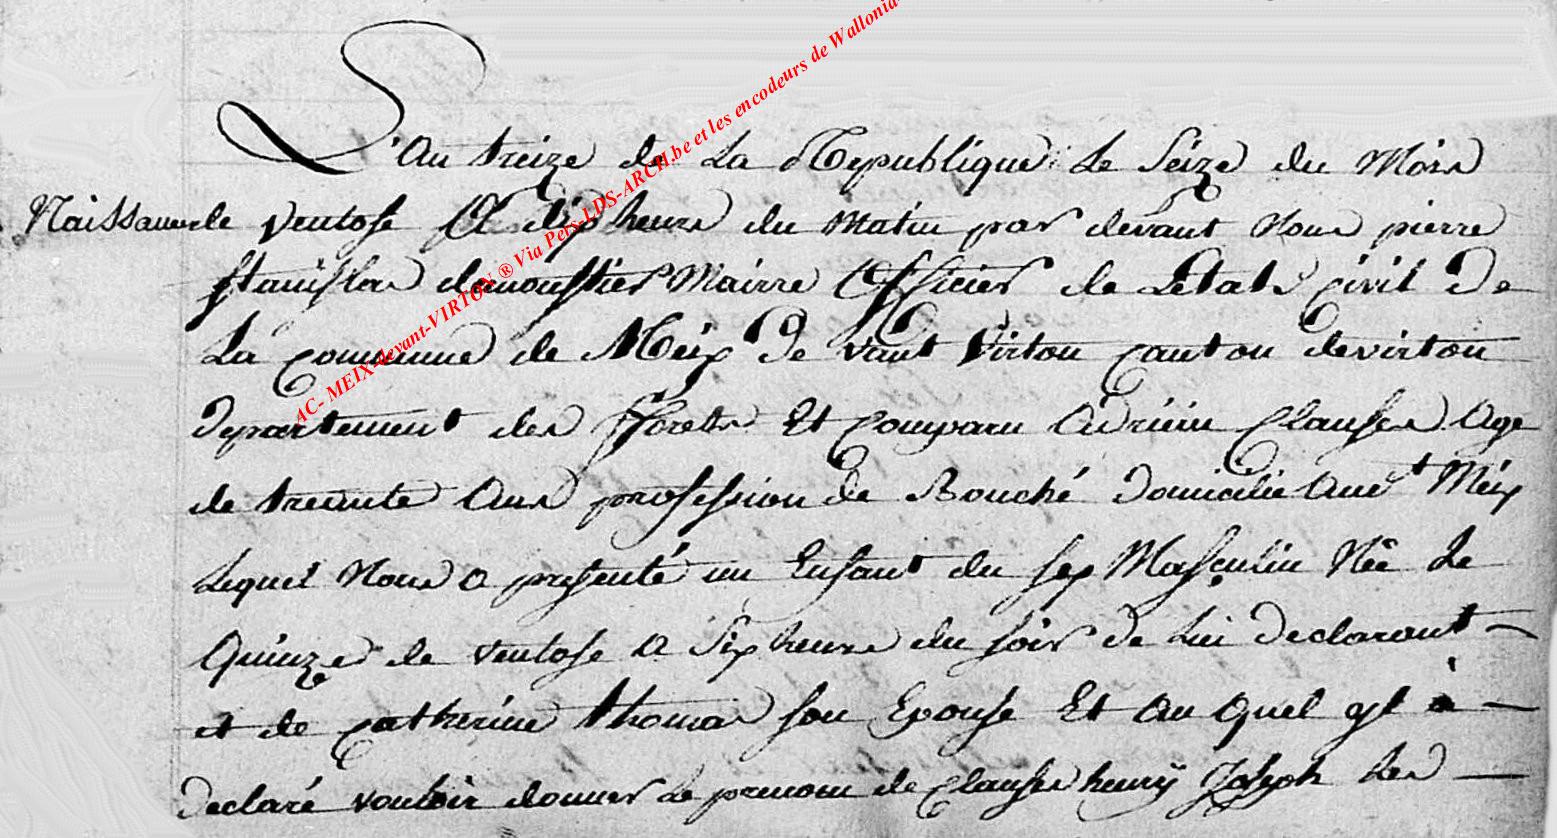 L'an treize de La Republique Le Seize du Mois
Naissance de Ventose A dix heure du Matin par devant Nous pierre
Stanislas damoussier Mairre Officier de Letat civil De
La Commune de Meix De vant Virton Canton de virton
Departement des fforets Et Comparu Adrien Clausse Age
de trennte Ans profession de Bouché Domicilie Au Méix
Lequel Nous a presenté un Enfant du Sex Masculin Né Le
Quinze de Ventose a Six heure du soir de Lui Declarant
et de Catherine thomas son Epouse Et Au Quel il à
Declaré vouloir donner Le prenom de Clausse henrÿ Joseph Les
AC- MEIX-devant-VIRTON ® Via Pets-LDS-ARCH.be et les encodeurs de Wallonia